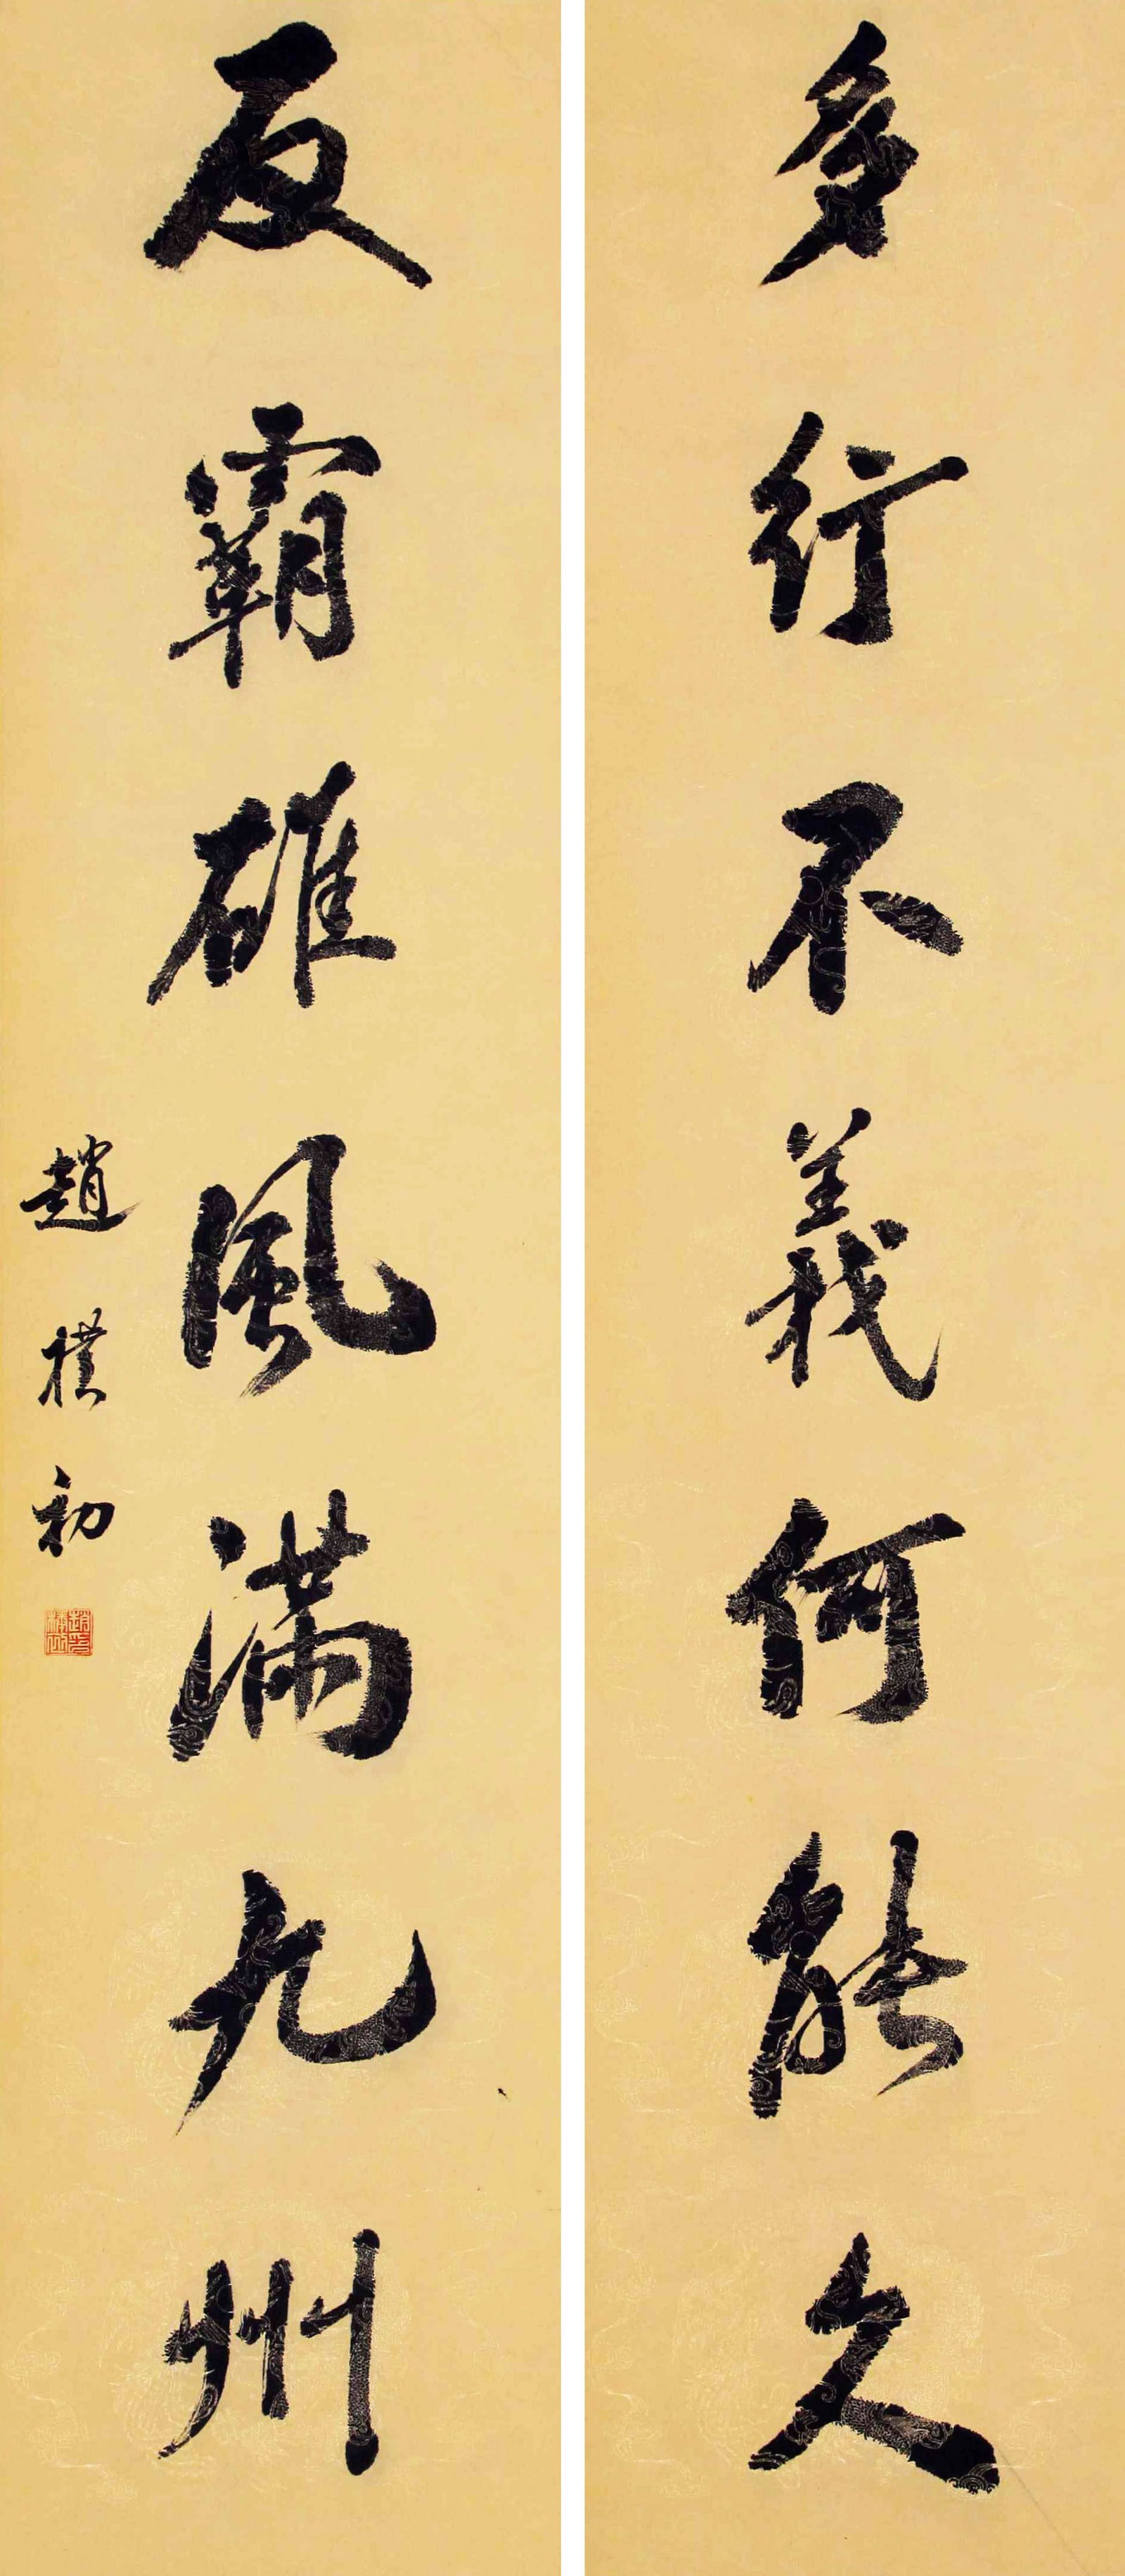 多行不義何能久
反霸雄風滿九州
趙樸初